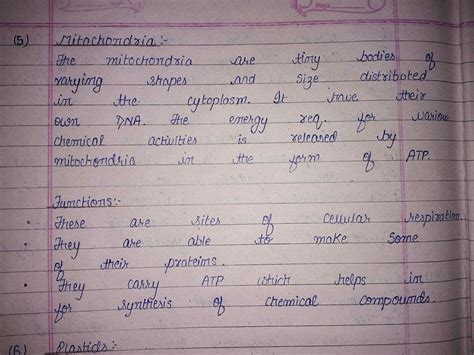 (5) Mitochondria :-
The mitochondria are tiny bodies of
varying shapes and size distributed
in the cytoplasm. It have their
own DNA. The energy req. for various
chemical activities is released by
mitochondria in the form of ATP.
Functions:-
• These are sites of cellular respiration.
• They are able to make some
of their proteins.
• They carry ATP which helps in
for synthesis of chemical compounds.
(6) Plastids :-